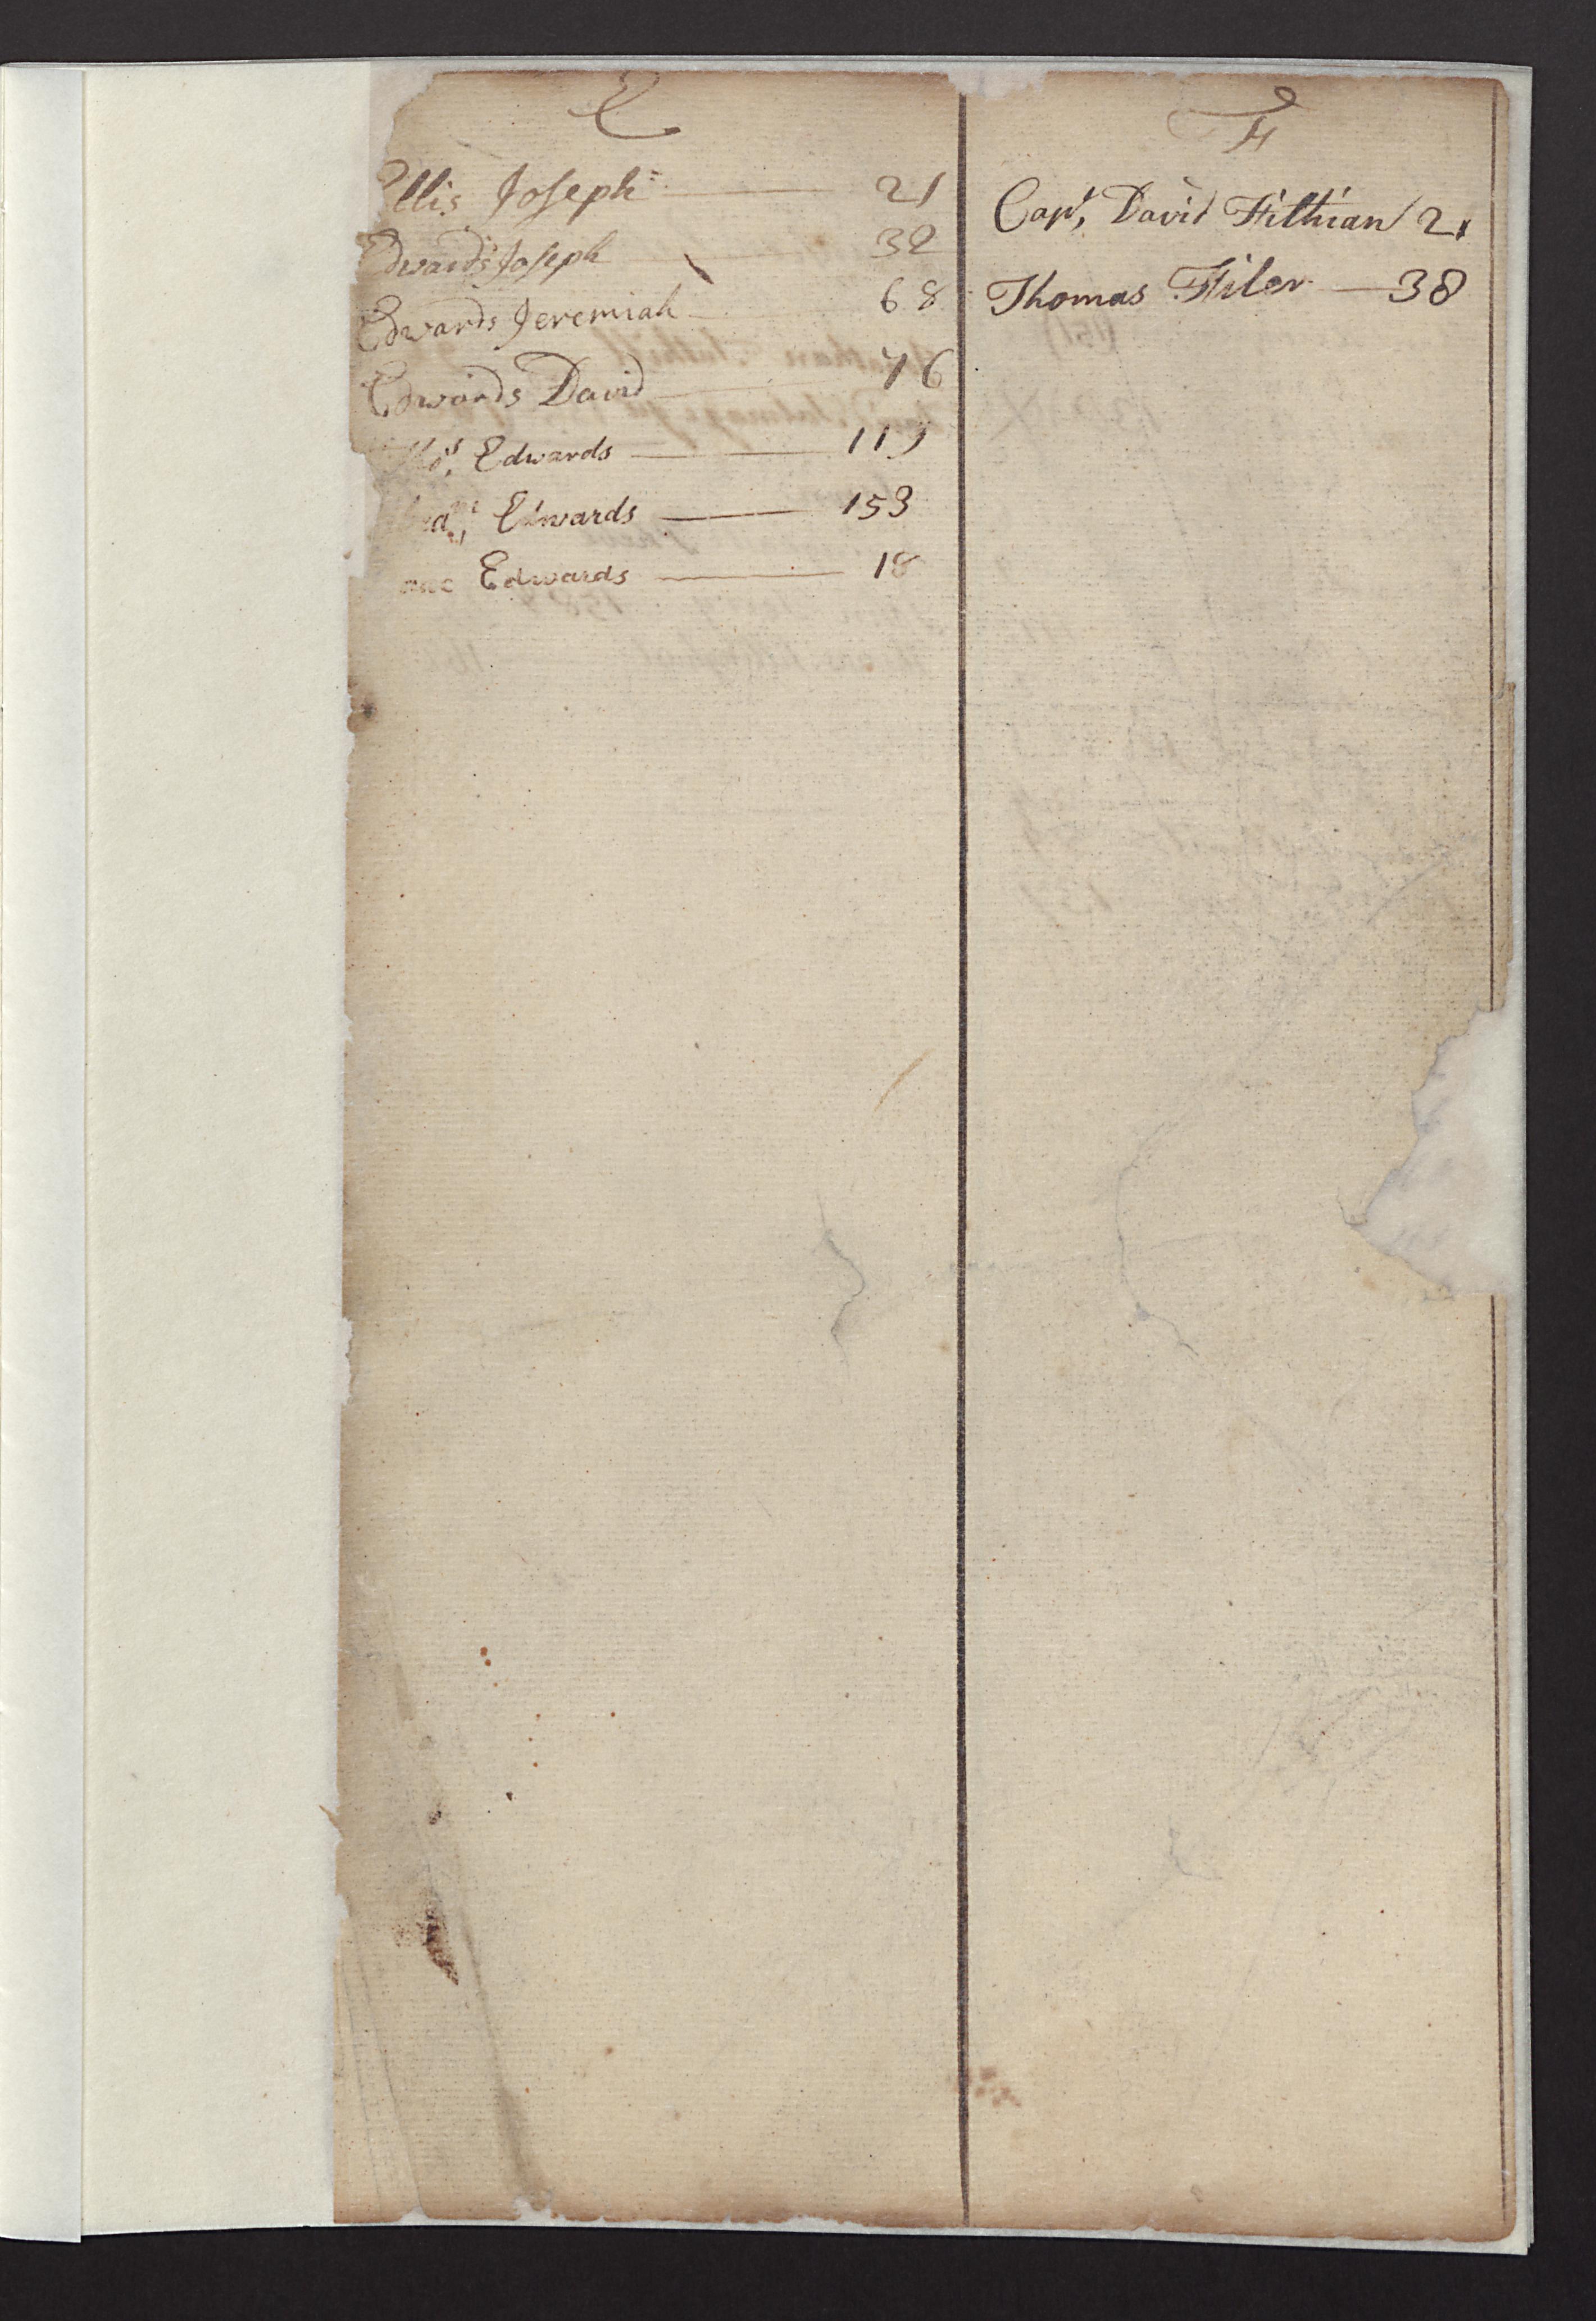 E
Ellis Joseph 21
Edwards Joseph 32
Edwards Jeremiah 68
Edwards David 76
Thos, Edwards 119
Edwards 153
Edwards 18
F
Capt, David Fithian 21
Thomas Filer 38